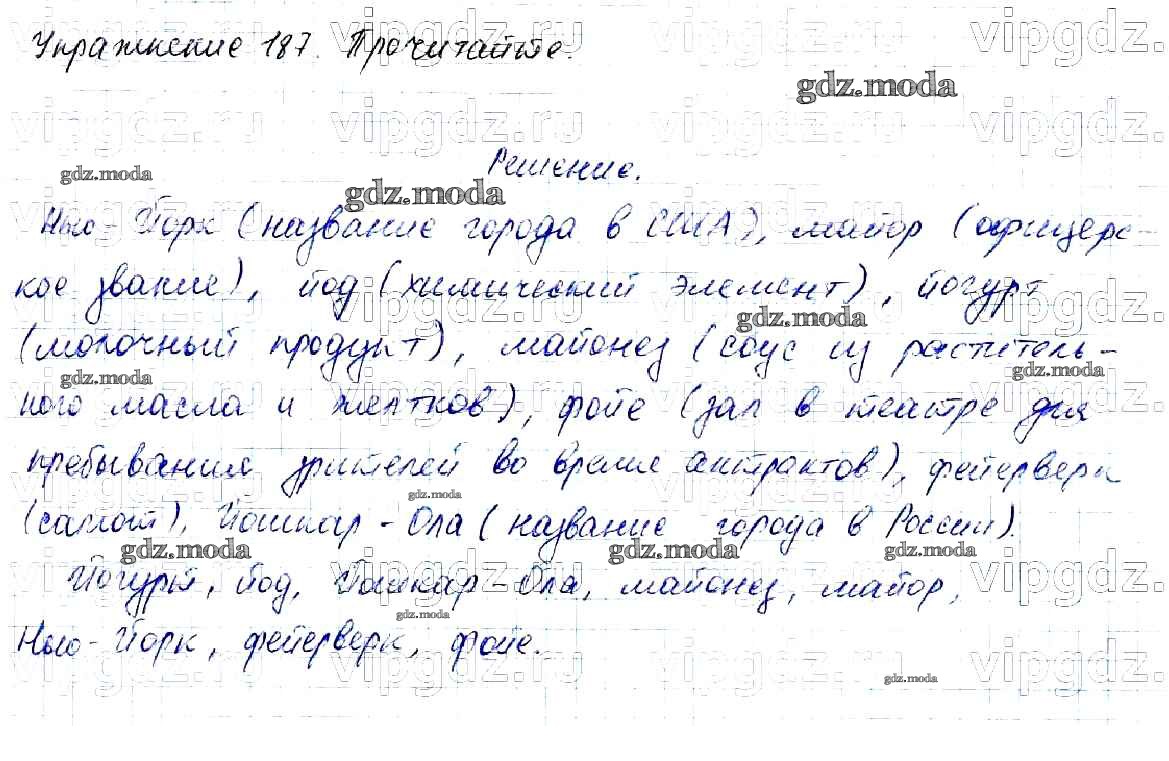 vipgdz.ru vipgdz.ru vipgdz.ru vipgdz.
Упражнение 187. Прочитайте.
gdz.moda
vipgdz.ru vipgdz.ru vipgdz.ru vipgdz.
Решение.
gdz.moda gdz.moda
Нью-Йорк (название города в США), майор (офицерс-
кое звание), йод (химический элемент), йогурт
gdz.moda
(молочный продукт), майонез (соус из раститель-
gdz.moda gdz.moda
ного масла и желтков), фойе (зал в театре для
пребывания зрителей во время антрактов), фейерверк
gdz.moda
(салют), Йошкар-Ола (название города в России).
gdz.moda gdz.moda gdz.moda gdz.moda
Йогурт, йод, Йошкар-Ола, майонез, майор,
gdz.moda
Нью-Йорк, фейерверк, фойе.
vipgdz.ru vipgdz.ru vipgdz.ru vipgdz.
gdz.moda